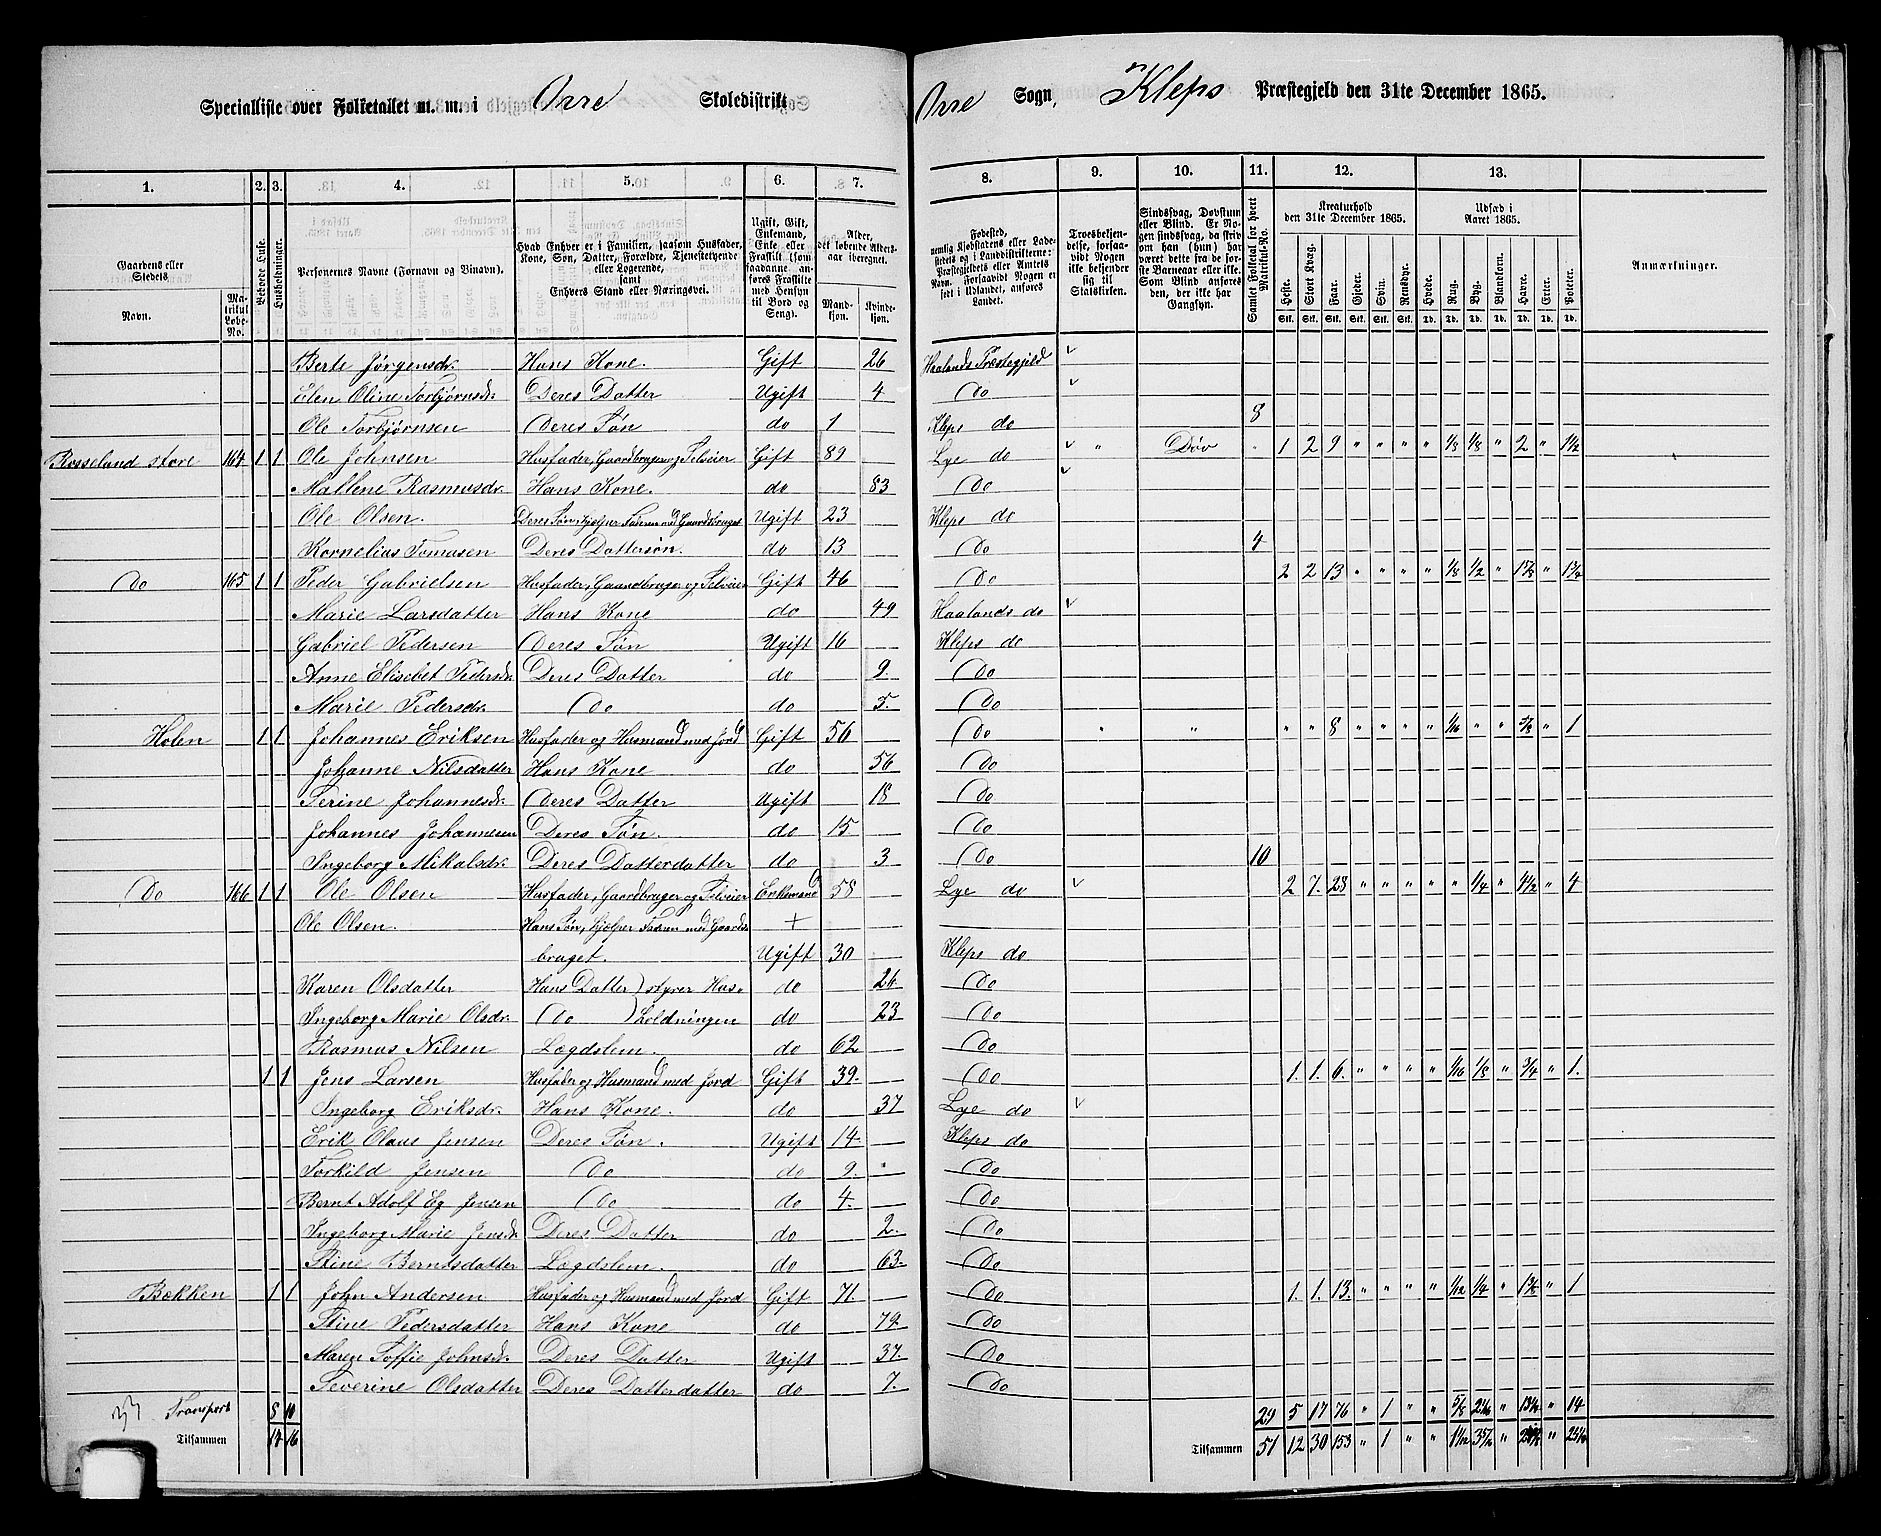 Specialliste over Folketallet m. m. i Orre Skoledistrikt Orre Sogn, Kleps Præstegjeld den 31te December 1865.
1. 2. 3. 4. 5. 6. 7. 8. 9. 10. 11. 12. 13.
Gaardens eller Stedets Navn. Matrikul Løbe-No. Beboede Huse. Husholdninger. Personernes Navne (Fornavn og Tilnavn). Hvad Enhver er i Familien, saasom Husfader, Kone, Søn, Datter, Forældre, Tjenestetyende eller Logerende, samt Enhvers Stand eller Næringsvei. Ugift, Gift, Enkemand, Enke eller Fraskilt (som saadanne anføres Fraskilte med Hensyn til Bord og Seng). Alder, det løbende Alders-aar iberegnet. Mandkjøn. Kvindekjøn. Fødested, nemlig Kjøbstadens eller Ladestedets og i Landdistrikterne: Præstegjeldets eller Amtets Navn. Forsaavidt Nogen er født i Udlandet, anføres Landet. Troesbekjendelse, forsaavidt Nogen ikke bekjender sig til Statskirken. Sindssvag, Døvstum eller Blind. Er Nogen sindssvag, da skrives om han (hun) har været dette fra de første Barneaar eller ikke. Som Blind anføres den, der ikke har Gangsyn. Samlet Folketal for hvert Matrikul-No. Kreaturhold den 31te December 1865. Udsæd i Aaret 1865. Anmærkninger.
Heste. Stort Kvæg. Faar. Gjeder. Svin. Rensdyr. Hvede. Rug. Byg. Blandkorn. Havre. Erter. Poteter.
Stk. Stk. Stk. Stk. Stk. Stk. Td. Td. Td. Td. Td. Td. Td.
Berte Jørgensdr. Hans Kone. Gift 26 Haalands Præstegjeld
Elen Oline Torbjørnsdr. Deres Datter Ugift 4 Do
Ole Torbjørnsen Deres Søn do 1 Kleps do 8
Rosseland store 164 1 1 Ole Johnsen Husfader, Gaardbruger og Selveier Gift 89 Lye do " Døv " 1 2 9 " " " " 1/8 1/8 " 2 " 1 1/2
Mallene Rasmusdr. Hans Kone. do 83 Do
Ole Olsen. Deres Søn, hjælper Faderen med Gaardsbruget Ugift 23 Kleps do
Kornelias Tomasen Deres Dattersøn. do 13 Do 4
Do 165 1 1 Peder Gabrielsen Husfader, Gaardbruger og Selveier Gift 46 Do 2 2 13 " " " " 1/8 1/2 " 1 7/8 " 1 3/4
Marie Larsdatter Hans Kone do 49 Haalands do
Gabriel Pedersen Deres Søn Ugift 16 Kleps do
Anne Elisebet Pedersdr Deres Datter do 9. Do
Marie Pedersdr. Do do 5. Do
Holen 1 1 Johannes Eriksen Husfader og Husmand med Jord Gift 56 Do " " " " 8 " " " " 1/16 " " 3/8 " 1
Johanne Nilsdatter Hans Kone do 56 Do
Serine Johannesdr. Deres Datter Ugift 18 Do
Johannes Johannesen Deres Søn. do 15 Do
Ingeborg Mikalsdr. Deres Datterdatter do 3 Do 10
Do 166 1 1 Ole Olsen Husfader, Gaardbruger og Selveier Enkemand 58 Lye do 2 7. 28 " " " " " 1/4 " 4 1/2 " 4
Ole Olsen. Hans Søn, hjælper Faderen med Gaards- +
bruget. Ugift 30 Kleps do
Karen Olsdatter Hans Datter ) styrer Hus- do 26 Do
Ingeborg Marie Olsdr. Do ) holdningen do 23 Do
Rasmus Nilsen Lægdslem. do 62 Do
1 1 Jens Larsen Husfader og Husmand med Jord Gift 39. Do 1. 1. 6. " " " " 1/16 1/8 " 3/4 " 1.
Ingeborg Eriksdr. Hans Kone. do 37 Lye do
Erik Olaus Jensen Deres Søn. Ugift 14. Kleps do
Torkild Jensen Do do 9. Do
Bernt Adolf Eg Jensen Do do 4. Do
Ingeborg Marie Jensdr. Deres Datter do 2. Do
Stine Berntsdatter Lægdslem. do 63. Do
Bækken 1 1 John Andersen Husfader og Husmand med Jord Gift 71. Do 1. 1. 13. " " " " 1/12 1/4 " " 1
Stine Pedersdatter Hans Kone do 79. Do
Maren Soffie Johnsdr. Deres Datter Ugift 37. Do
Severine Olsdatter Deres Datterdatter do 7. Do
33 Transport 8 10 29 5 17 76 " 1 " " 5/8 " " 14
Tilsammen 14 16 Tilsammen 51 12 30 153 " 1 " " " "